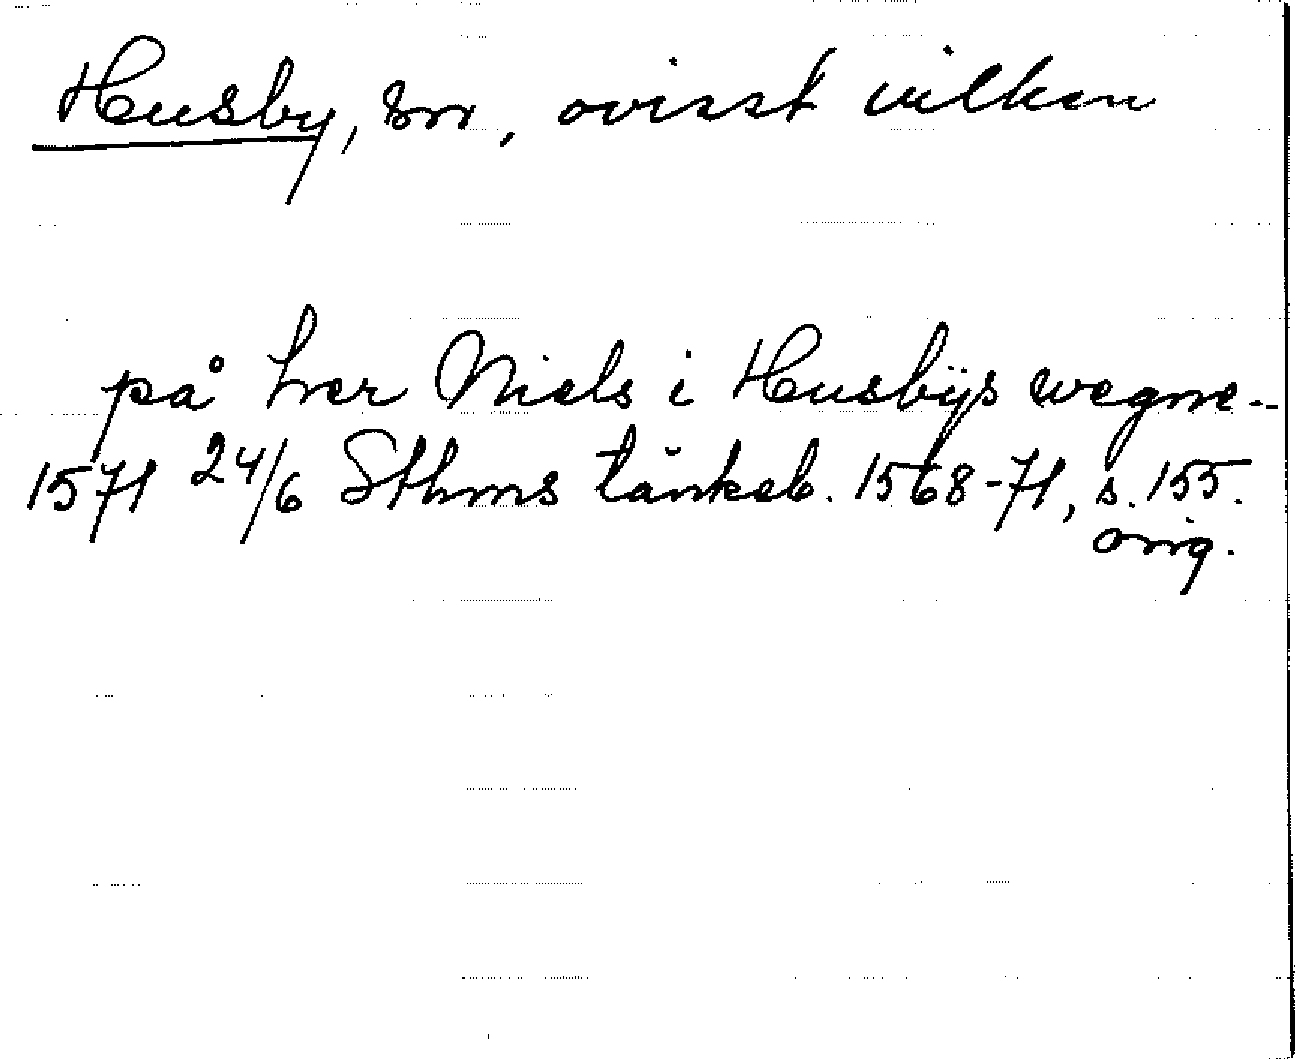 Husby, sn, ovisst vilken
på her Niels i Husbÿs wegne--
1571 24/6 Sthms tänkeb. 1568-71, s. 155.
orig.